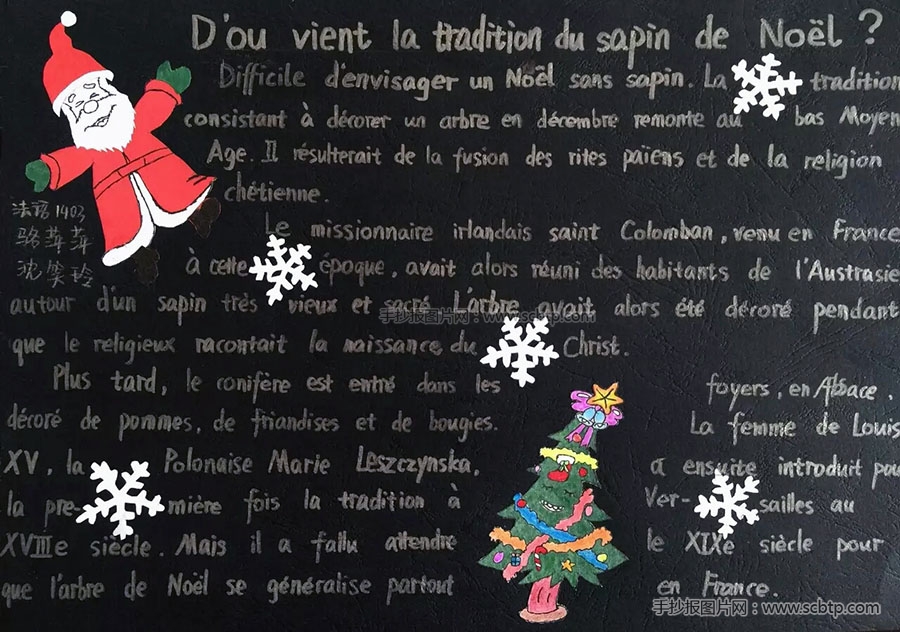 D'ou vient la tradition du sapin de Noël ?
Difficile d'envisager un Noël sans sapin. La tradition
consistant à décorer un arbre en décembre remonte au bas Moyen
Age. Il résulterait de la fusion des rites païens et de la religion
chétienne.
法语1403
骆萍萍
沈笑玲
Le missionnaire irlandais saint Colomban, venu en France
à cette époque, avait alors réuni des habitants de l'Austrasie
autour d'un sapin très vieux et sacré L'arbre avait alors été décoré pendant
手抄报图片网：www.scbtp.com
que le religieux racontait la naissance du Christ.
Plus tard, le conifère est entré dans les foyers, en Alsace,
décoré de pommes, de friandises et de bougies. La femme de Louis
XV, la Polonaise Marie Leszczynska, a ensuite introduit pour
la pre- mière fois la tradition à Ver- sailles au
XVIIIe siècle. Mais il a fallu attendre le XIXe siècle pour
que l'arbre de Noël se généralise partout en France.
手抄报图片网：www.scbtp.com